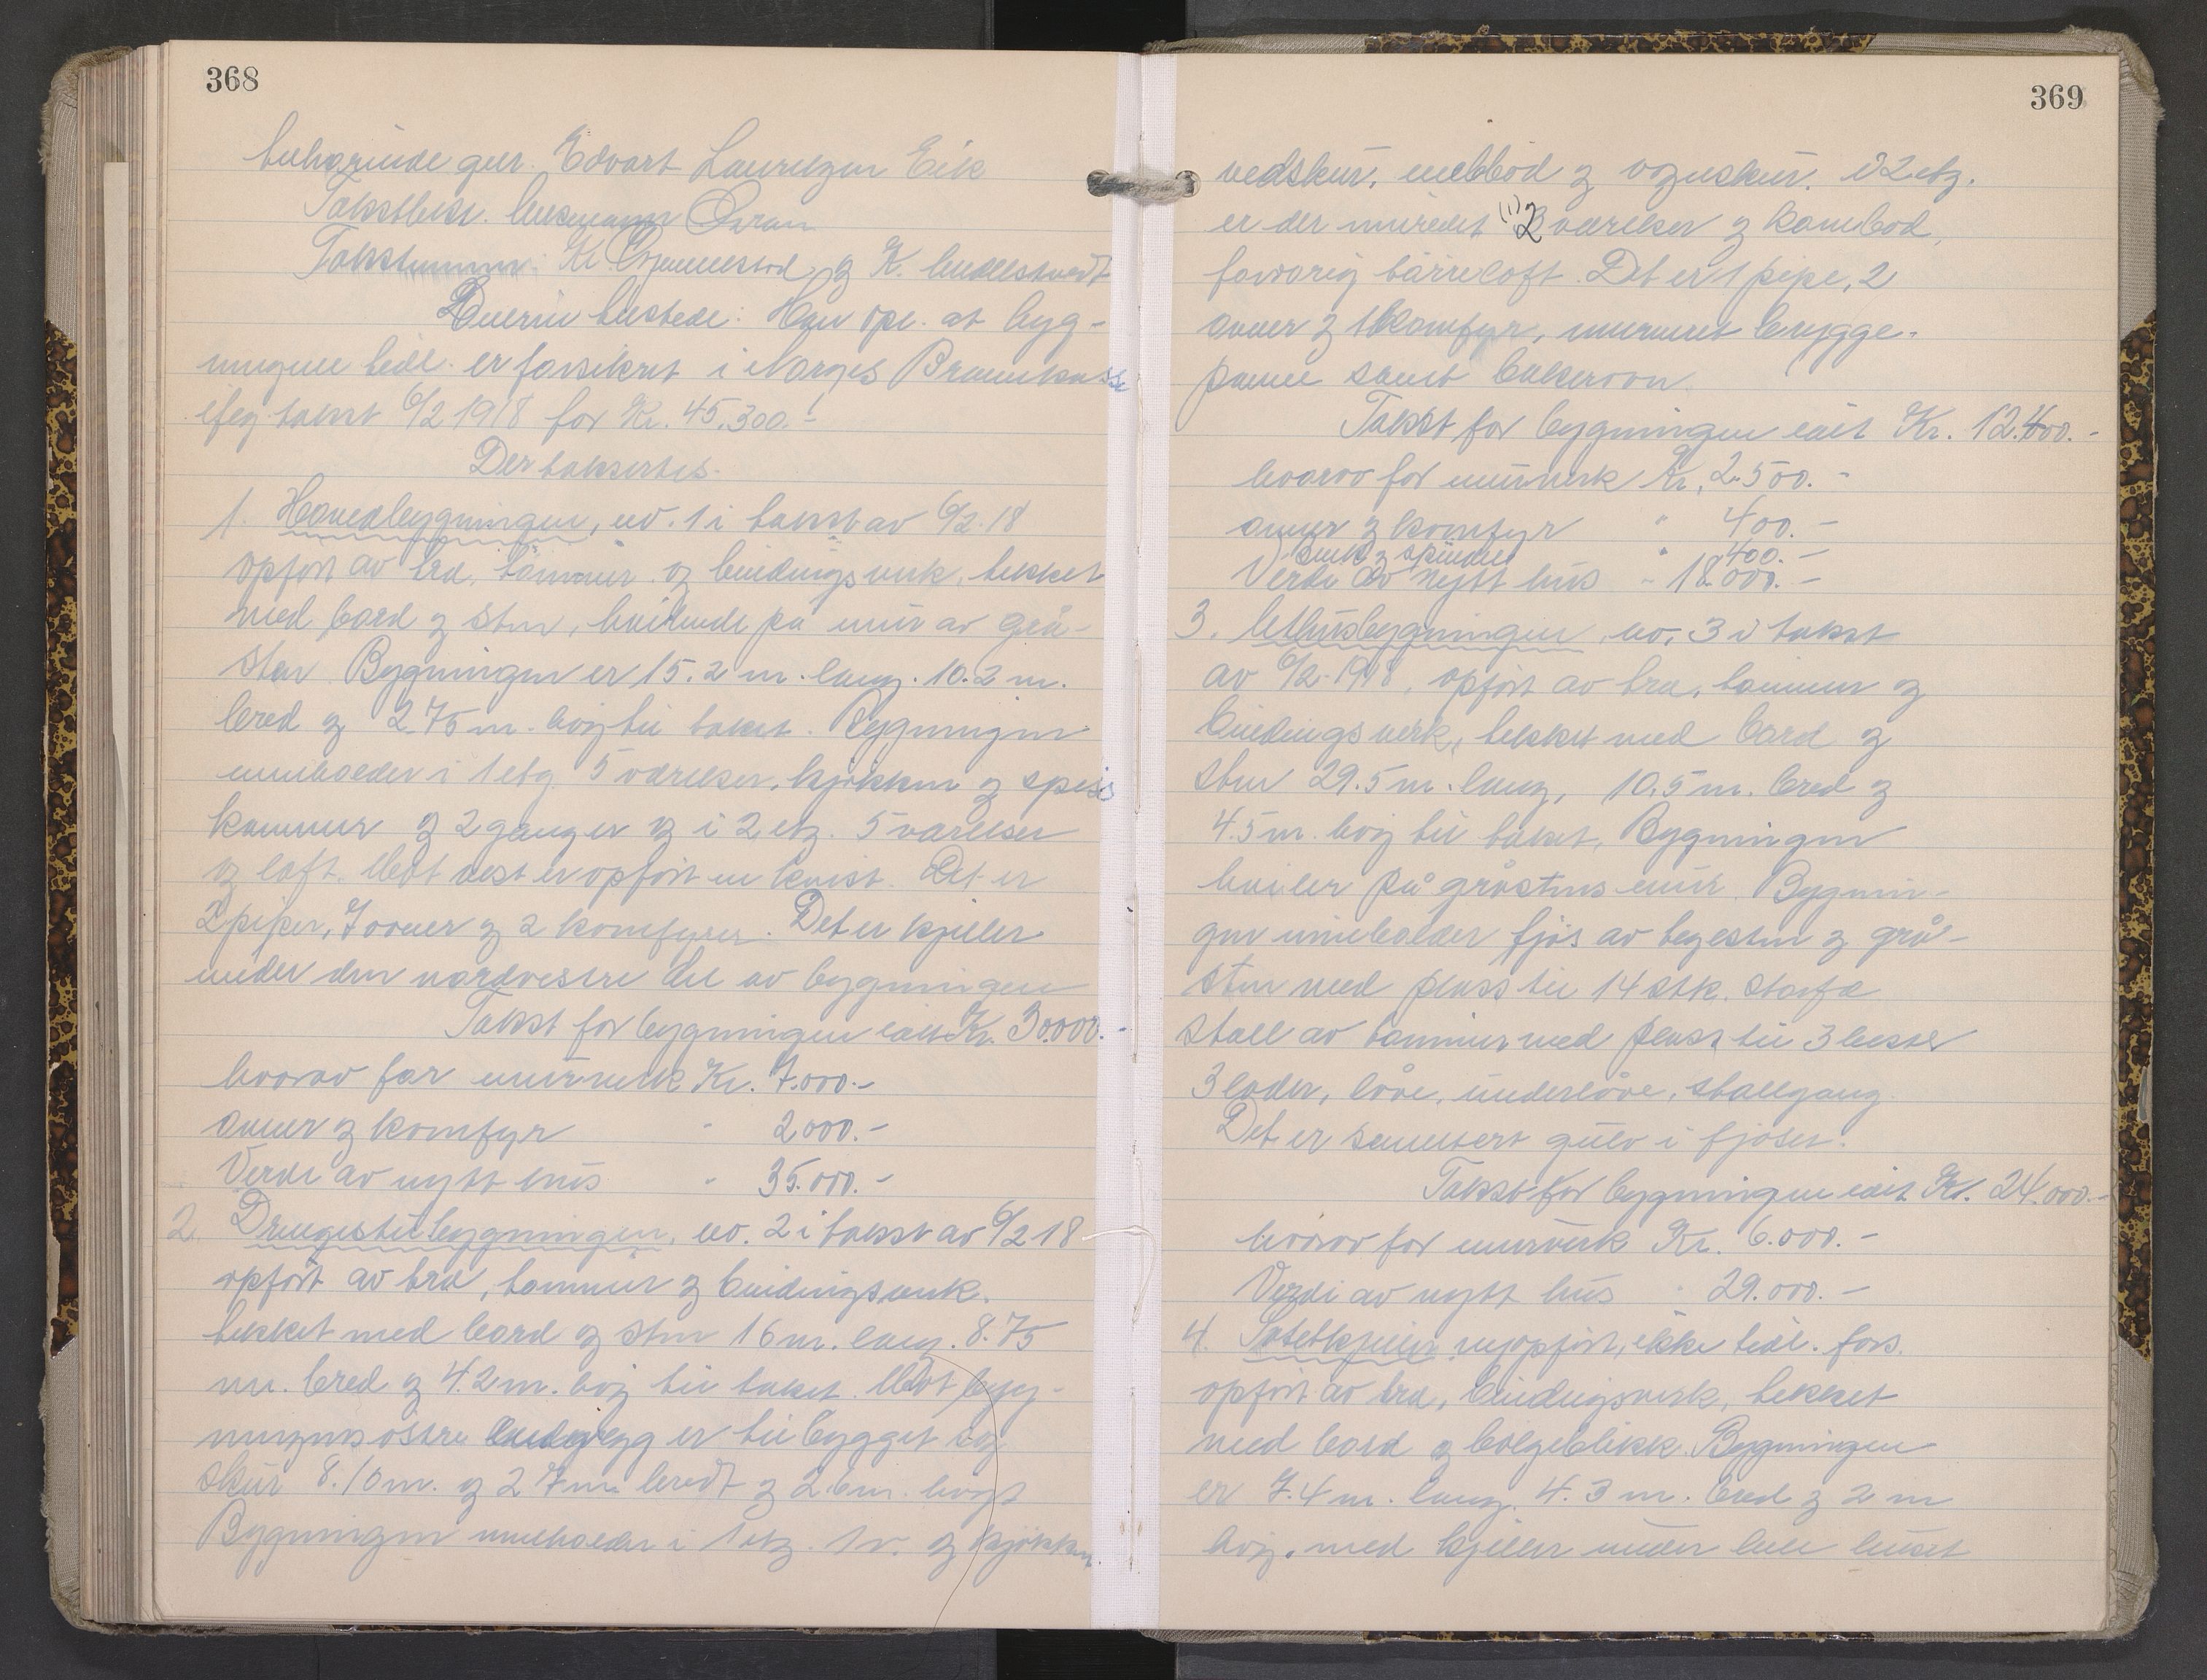 368
tilhørende gdr. Edvart Lauritzen Eik
Takstbest. lensmann
Takstmenn: Kr. og K.
Eieren tilstede: Han opl. at byg-
ningene tidl. er forsikret i Norges Brannkasse
ifølg takst 6/2 1918 for Kr. 45.300.-
Der takseertes.
1. Hovedbygningen, no. 1 i takst av 6/2.18
opført av tre, tømmer og bindingsverk, tekket
med bord og sten, hvilende på mur av grå-
sten Bygningen er 15.2 m. lang. 10.2 m.
bred og 2.75 m. høi til taket. Bygningen
inneholder i 1 etg 5 værelser, kjøkken og spis
kammer og 2 ganger og i 2 etg. 5 værelser
og loft. Mot vest er opført en kvist. Det er
2 piper, 7 ovner og 2 komfyrer. Det er kjeller
under den nordvestre del av bygningen
Takst for bygningen ialt Kr. 30.000.-
hvorav for murverk Kr. 7.000.-
ovner og komfyr " 2000.-
Verdi av nytt hus " 35.000.-
2. Drengestubygningen, no. 2 i takst av 6/2 18
opført av tre, tømmer og bindingsverk.
tekket med bord og sten 16 m. lang. 8.75
m. bred og 4.2 m. høi til taket. Mot byg-
ningens østre endevegg er tilbygget et
skur 8.10 m. og 2.7 m. bredt og 2.6 m. høigt
Bygningen inneholder i 1 etg. 1 v. og kjøkken
369
vedskur, melbod og vognskur. I 2 etg.
er der innredet (1) 2 værelser og kornbod,
forøvrig tørreloft. Det er 1 pipe, 2
ovner og 1 komfyr, innmuret brygge-
panne samt bakerovn
Takst for bygningen ialt Kr. 12.400.-
hvorav for murverk Kr. 2.500.-
ovner og komfyr " 400.-
" 400.-
Verdi av nytt hus " 18.000.-
3. Uthusbygningen, no. 3 i takst
av 6/2-1918, opført av tre, tømmer og
bindingsverk, tekket med bord og
sten 29.5 m. lang, 10.5 m. bred og
4.5 m. høi til taket, Bygningen
hviler på gråstensmur. Bygnin-
gen inneholder fjøs av teglsten og grå-
sten med plass til 14 stk. storfe
stall av tømmer med plass til 3 hester
3 lader, låve, underlåve, stallgang.
Det er sementert gulv i fjøset.
Takst for bygningen ialt Kr. 24.000.-
hvorav for murverk Kr. 6.000.-
Verdi av nytt hus " 29.000.-
4. Potetkjeller nyopført, ikke tidl. fors.
opført av tre, bindingsverk, tekket
med bord og bølgeblikk. Bygningen
er 7.4 m. lang, 4.3 m. bred og 2 m
høi, med kjeller under hele huset